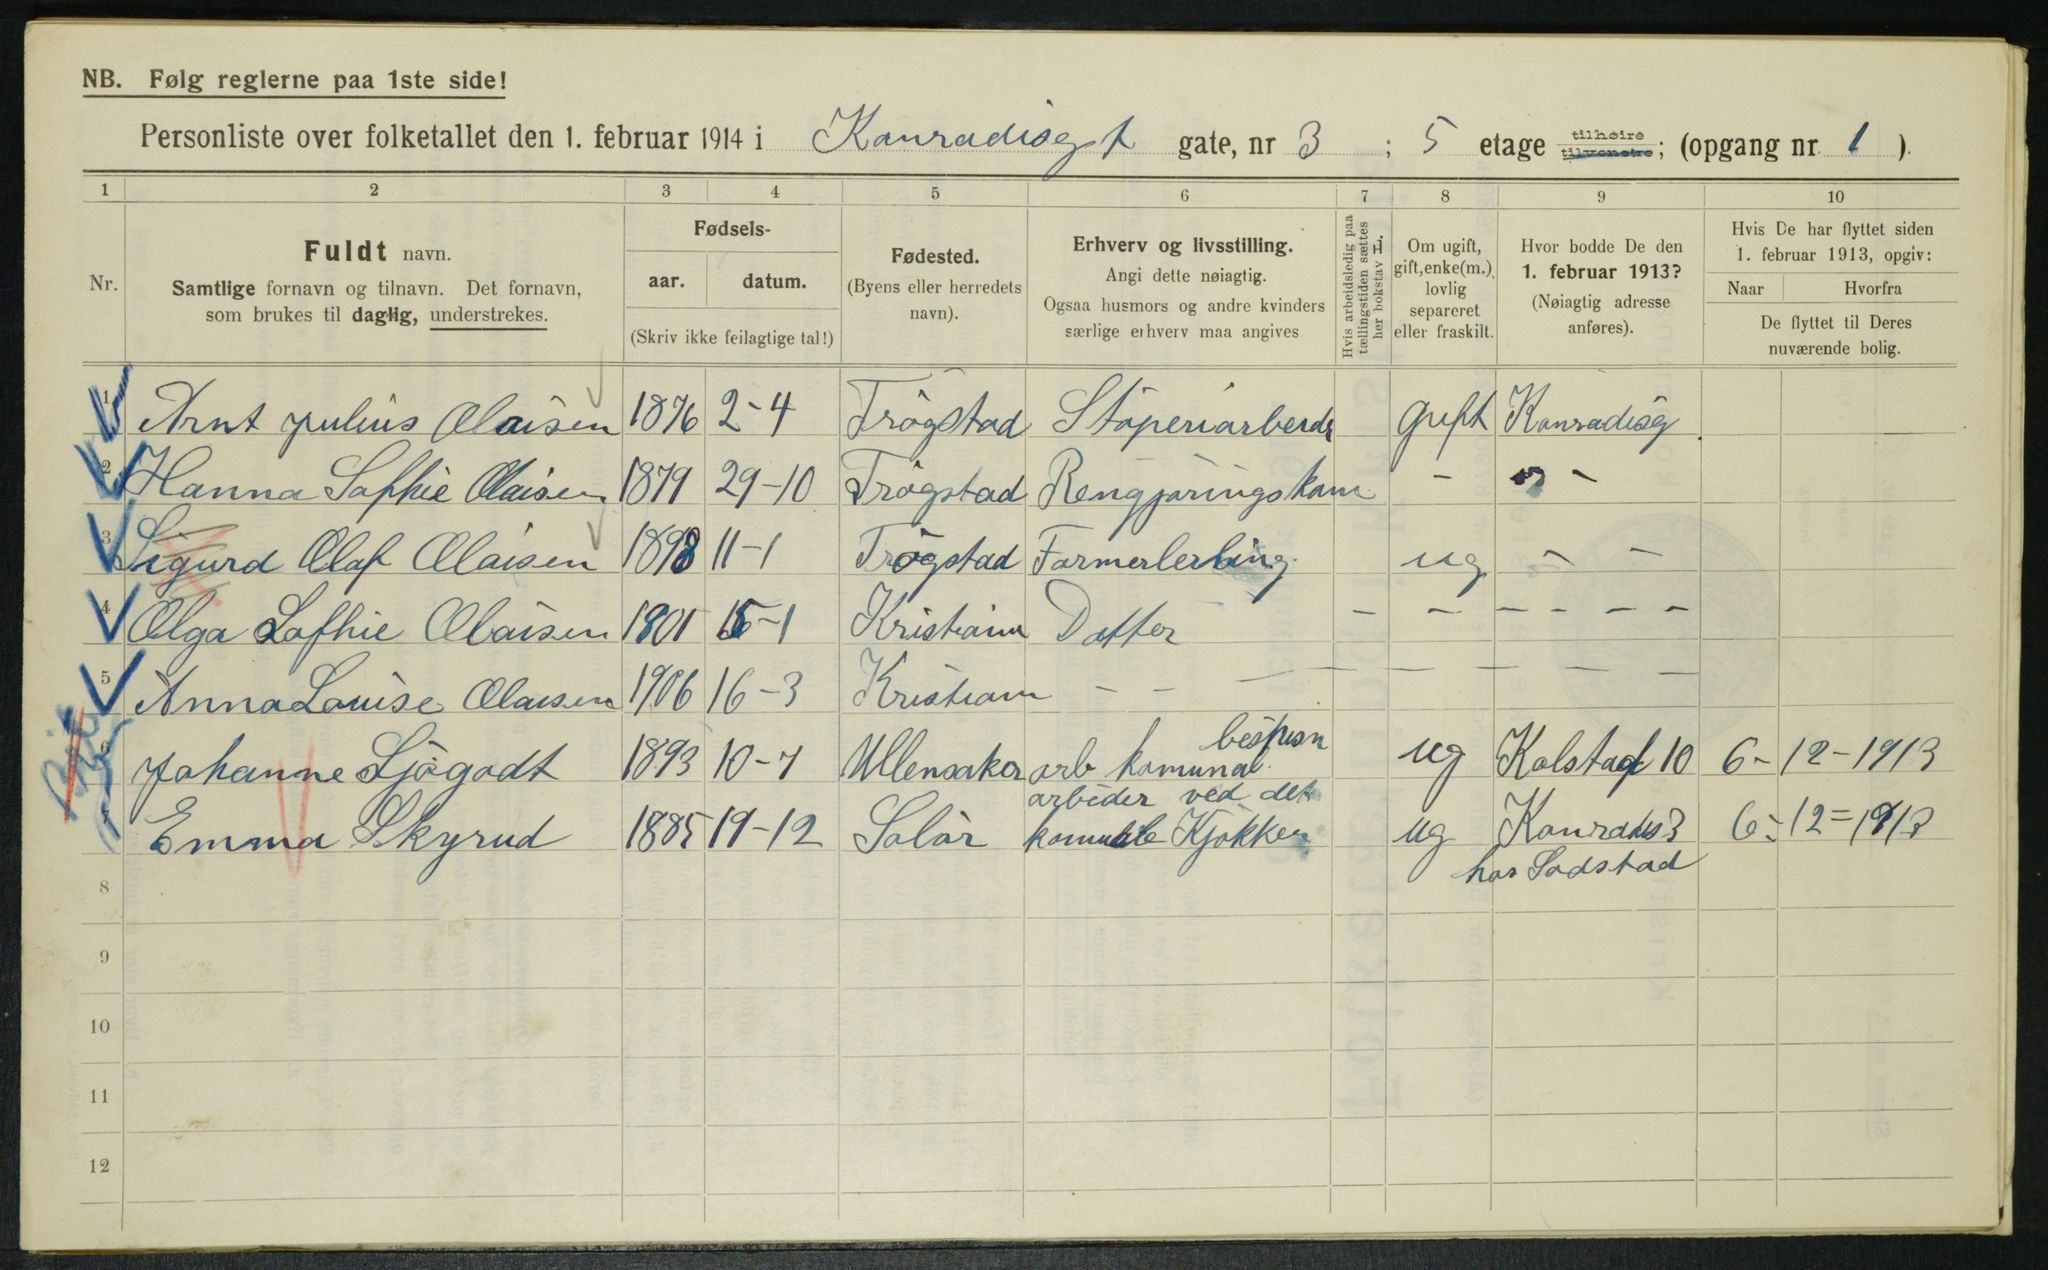 NB. Følg reglerne paa 1ste side!
Personliste over folketallet den 1. februar 1914 i Konradisgt gate, nr 3 ; 5 etage tilhøire tilvenstre; (opgang nr 1 ).
1 2 3 4 5 6 7 8 9 10
Nr.
Fuldt navn.
Samtlige fornavn og tilnavn. Det fornavn,
som brukes til daglig, understrekes.
Fødsels-
aar. datum.
(Skriv ikke feilagtige tal!)
Fødested.
(Byens eller herredets
navn).
Erhverv og livsstilling.
Angi dette nøiagtig.
Ogsaa husmors og andre kvinders
særlige erhverv maa angives
Hvis arbeidsledig paa
tællingstiden sættes
her bokstav H.
Om ugift,
gift, enke(m.),
lovlig
separeret
eller fraskilt.
Hvor bodde De den
1. februar 1913?
(Nøiagtig adresse
anføres).
Hvis De har flyttet siden
1. februar 1913, opgiv:
Naar Hvorfra
De flyttet til Deres
nuværende bolig.
1 Arnt Julius Olaisen 1876 2-4 Trögstad Stöperiarbeidr gift Konradisg
2 Hanna Sofhie Olaisen 1879 29-10 Trögstad Rengjøringskone - -
3 Sigurd Olaf Olaisen 1898 11-1 Trögstad Formerlerling ug - -
4 Olga Sofhie Olaisen 1901 15-1 Kristiania Datter - - - - - -
5 Anna Louise Olaisen 1906 16-3 Kristiania - - - - - - - - -
bespisn
6 Johanne Sjögodt 1893 10-7 Ullensaker arb komunal ug Kolstadg 10 6-12-1913
arbeider ved det
7 Emma Skyrud 1885 19-12 Solör komunale Kjökken ug Konradis 3 6-12=1913
hos Sodstad
8
9
10
11
12